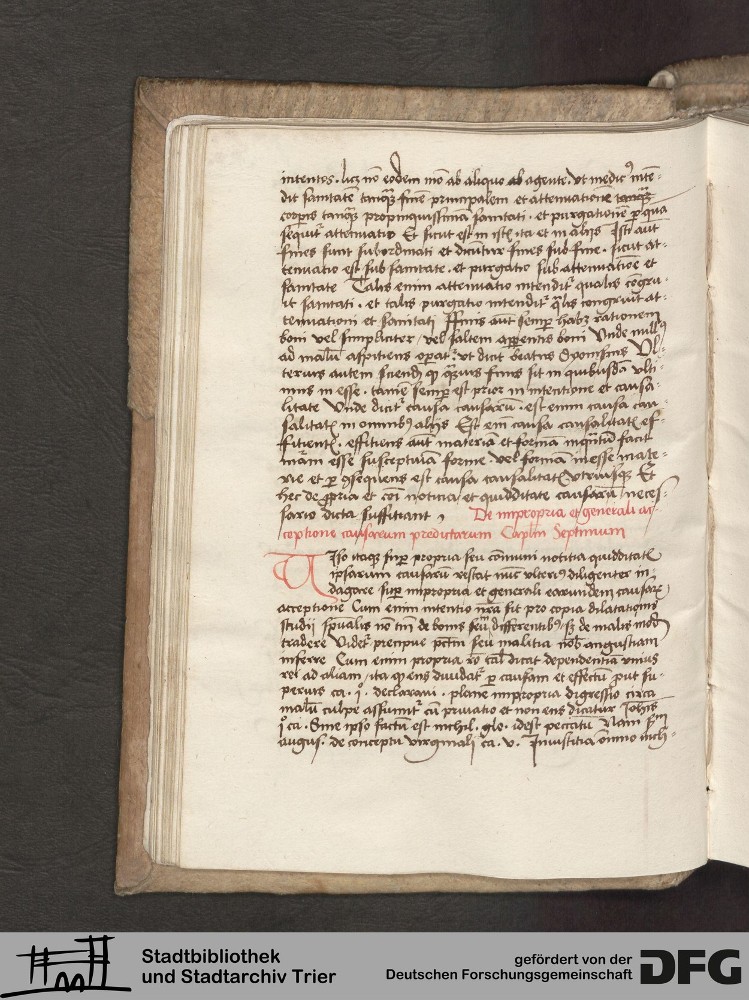 intentos. licz nō eodem mō ab aliquo ab agente. Vt medicꝰ inten-
dit sanitatē tanqᷓ finē principalem et attenuationē tanqᷓ
corpis tanqᷓ propinquissimā sanitati. et purgationē p qua
sequit᷑ attenuatio Et sicut est in istis ita et in alijs Isti aut
fines sunt subordinati et dicūtur fines sub fine. sicut at-
tenuatio est sub sanitate. et purgatio sub attenuatiōe et
sanitate Talis enim attenuatio intendit᷑ qualis congru-
it sanitati. et talis purgatio intendit᷑ qlis congruit at-
tenuationi et sanitati Finis aut semp habz rationem
boni vel simpliciter / vel saltem apparentis boni Vnde nullꝰ
ad malū aspitiens operat᷑. vt dicit beatus Dyonisius Vl-
terius autem sciendū qꝫ qᷓuis finis sit in quibusdā vlti-
mus in esse. tamē semp est prior in intentione et causa-
litate Vnde dicit᷑ causa causarū. est enim causa cau-
salitatis in omnibꝰ alijs Est enī causa causalitatis ef-
fitientis. effitiens aut materiā et formā inquātū facit
mām esse susceptiuā forme vel formā inesse mate-
rie et p ꝯsequens est causa causalitatis vtriusqꝫ Et
hec de ppria et cōi noticia et quidditate causarū neces-
sario dicta suffitiant. De impropria et generali ac-
ceptione causarum predictarum Caplm Septimum
Viso itaqꝫ sup propria seu cōmuni notitia quidditatis
ipsarum causarū restat nūc vlteriꝰ diligenter in-
dagare sup impropria et generali earundem causarū
acceptione Cum enim intentio nra sit pro copia dilatationis
studij spūalis nō tm de bonis seu differentibꝰ / sꝫ de malis modū
tradere Videt᷑ precipue pctm seu malitia nob angustiam
inferre Cum enim propria rō cāe dicat dependentiā vnius
rei ad aliam / ita qꝫ ens diuidat᷑ p causam et effectū put su-
perius ca. i°. declaraui. plane impropria digressio circa
malū culpe assumit᷑ cū priuatio et non ens dicatur Iohis
i° ca. Sine ipso factū est nichil. glo. idest peccatū Nam scdm
augus. de conceptu virginali ca. v. Iniustitia omnino nich-
Stadtbibliothek
und Stadtarchiv Trier
gefördert von der
Deutschen Forschungsgemeinschaft
DFG